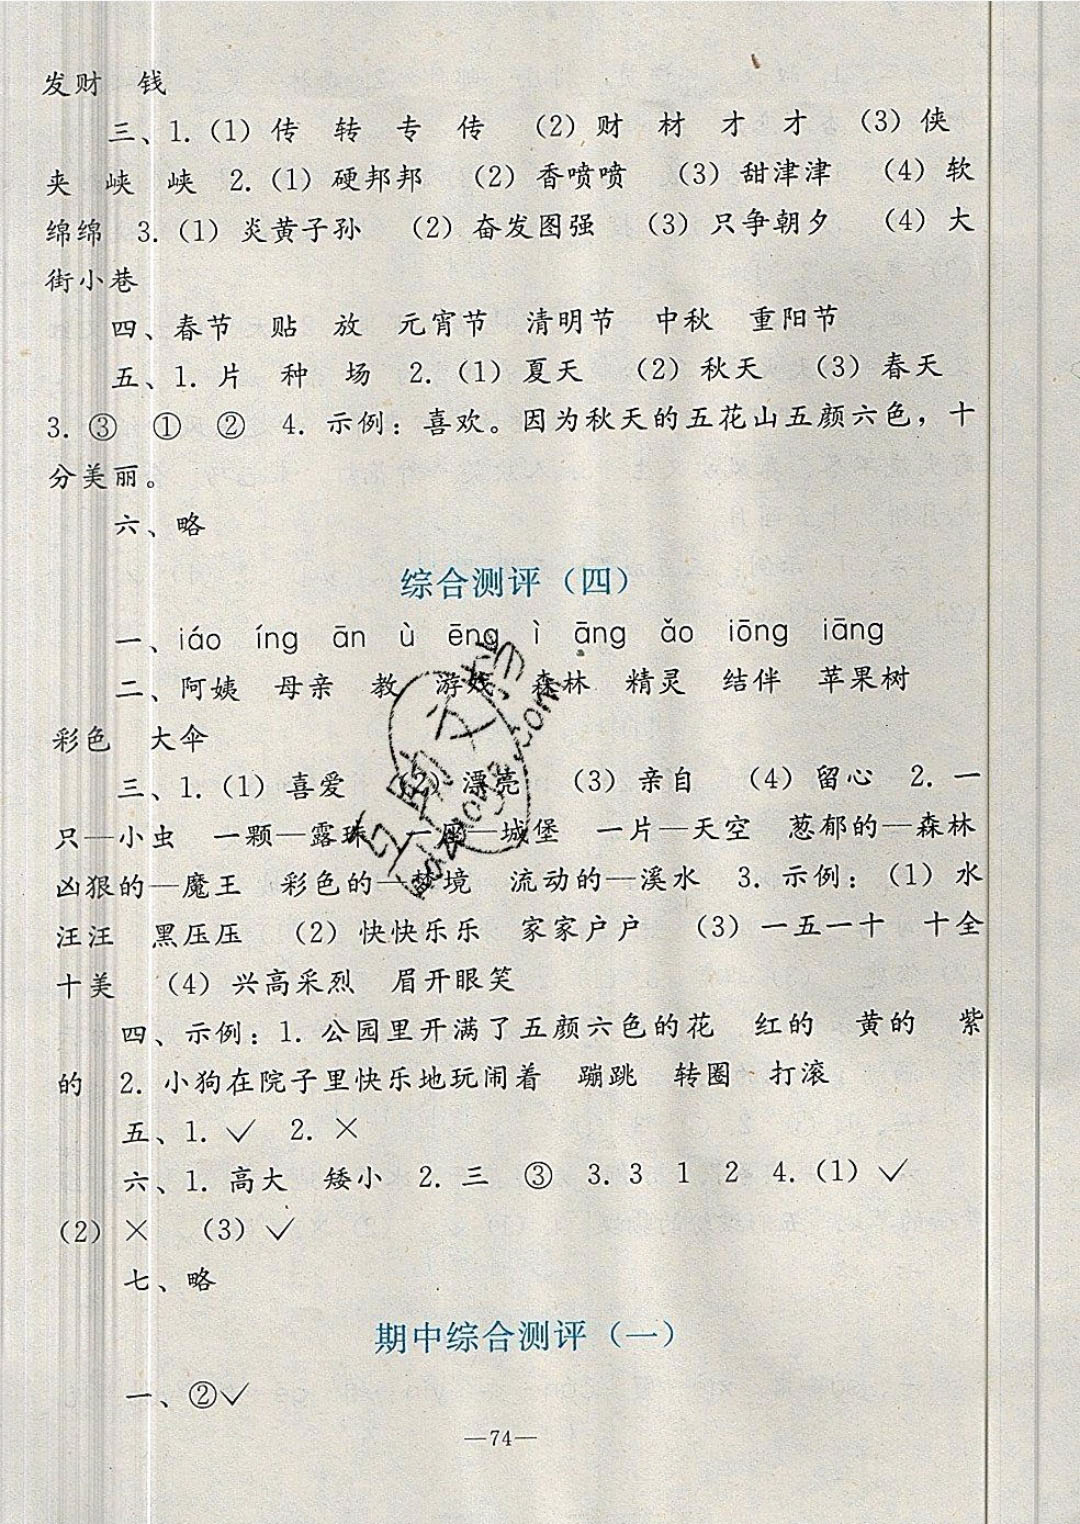 发财 钱
三、1.(1) 传 转 专 传 (2) 财 材 才 才 (3) 侠
夹 峡 峡 2.(1) 硬邦邦 (2) 香喷喷 (3) 甜津津 (4) 软
绵绵 3.(1) 炎黄子孙 (2) 奋发图强 (3) 只争朝夕 (4) 大
街小巷
四、春节 贴 放 元宵节 清明节 中秋 重阳节
五、1. 片 种 场 2.(1) 夏天 (2) 秋天 (3) 春天
3. ③ ① ② 4. 示例:喜欢。因为秋天的五花山五颜六色,十
分美丽。
六、略
综合测评(四)
一、iáo íng ān ù ēng ì āng ǎo iōng iāng
二、阿姨 母亲 教 游戏 森林 精灵 结伴 苹果树
彩色 大伞
三、1.(1) 喜爱 (2) 漂亮 (3) 亲自 (4) 留心 2. 一
只—小虫 一颗—露珠 一座—城堡 一片—天空 葱郁的—森林
凶狠的—魔王 彩色的—梦境 流动的—溪水 3. 示例:(1) 水
汪汪 黑压压 (2) 快快乐乐 家家户户 (3) 一五一十 十全
十美 (4) 兴高采烈 眉开眼笑
四、示例:1. 公园里开满了五颜六色的花 红的 黄的 紫
的 2. 小狗在院子里快乐地玩闹着 蹦跳 转圈 打滚
五、1. ✓ 2. ×
六、1. 高大 矮小 2. 三 ③ 3. 3 1 2 4.(1) ✓
(2) × (3) ✓
七、略
期中综合测评(一)
一、②✓
—74—